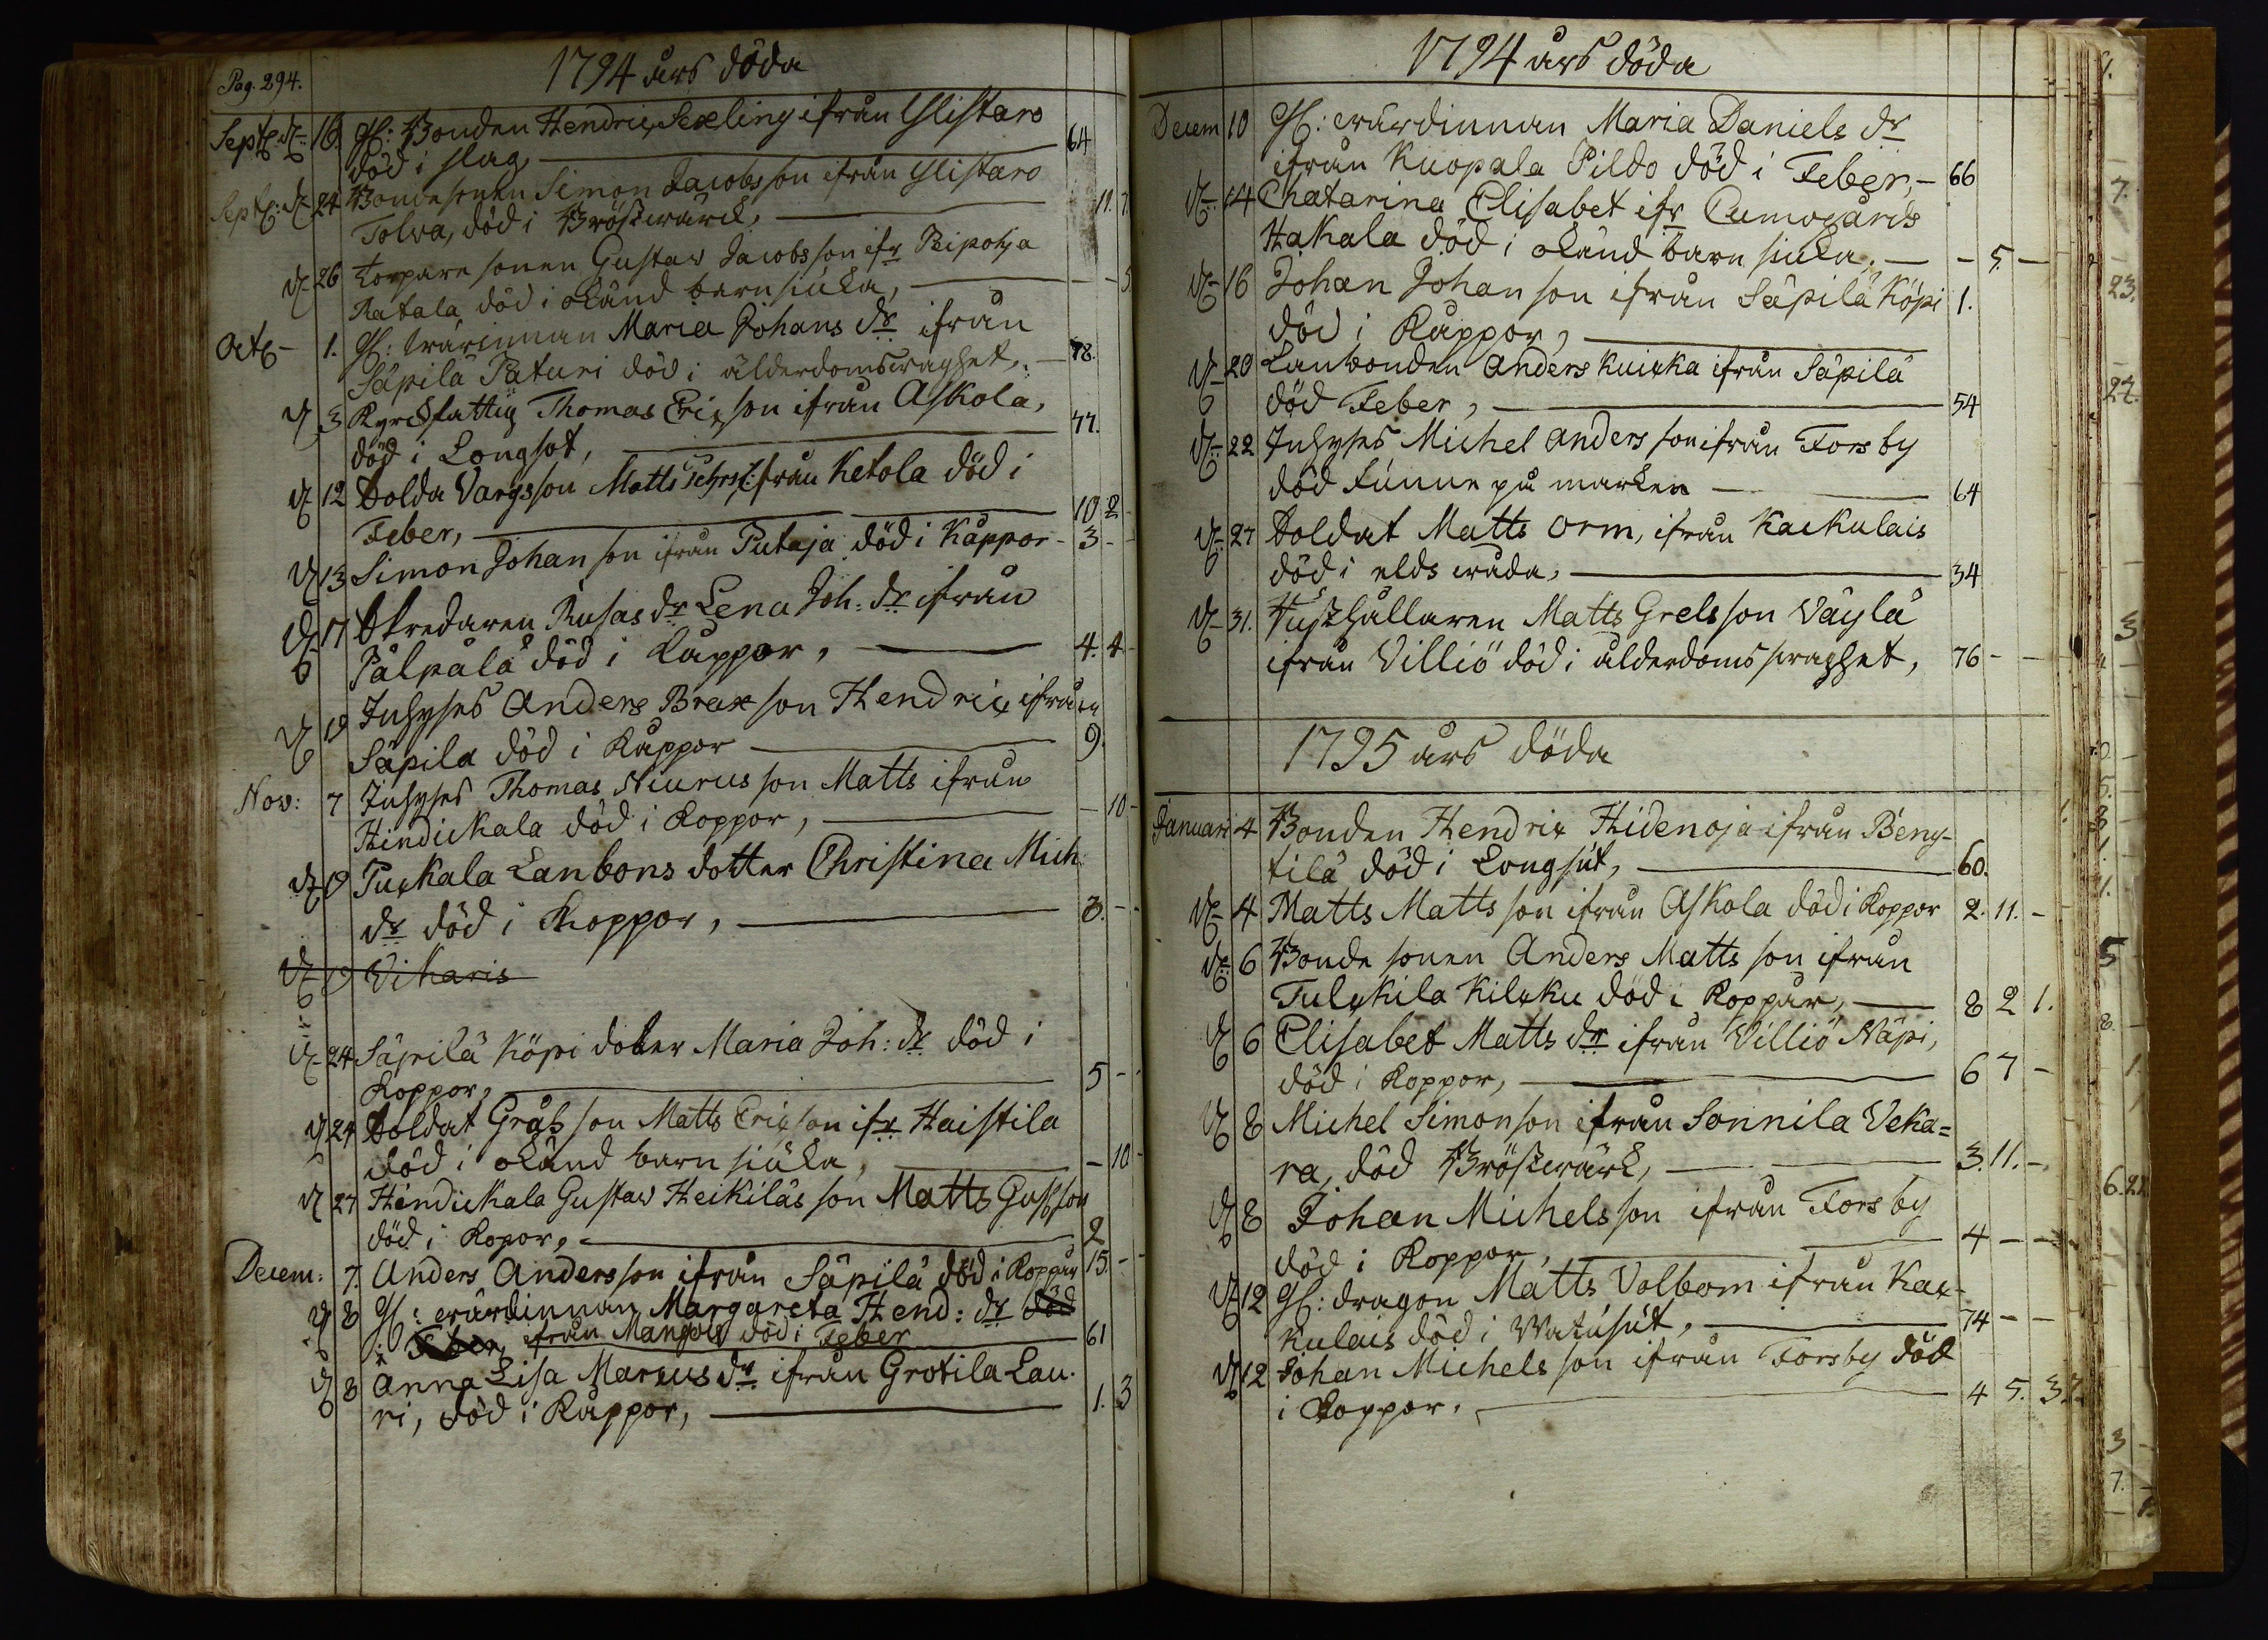 Pag. 294.
1794 års döda
Septe. d. 16. Gl: Bonden Hendric Sexling ifrån Ylistaro
död i slag, 64
Septe: d. 24 Bondesonen Simon Jacobsson ifrån Ylistaro
Tolva, död i Bröstwärck, 11. 7.
d. 26 torpare sonen Gustaw Jacobsson ifr Pipohja
Ratala död i okänd barnsiuka, - - 5
Octe - 1. Gl: wärdinnan Maria Johans dr ifrån
Säpilä Paturi död i ålderdomswaghet. 78.
d 3 Kyrckfattig Thomas Ericson ifrån Askola,
död i Longsot, 77.
d 12 Solda Vargsson Matts ifrån Ketola död i
Feber, 10 2
d 13 Simon Johanson ifrån Putaja död i Kåppor - 3 -
d 17 Skredaren Rusas dr Lena Joh: dr ifrån
Pålpålä död i Kåppor, 4. 4
d 19 Inhyses Anders Brax son Hendric ifrån
Säpila död i Kåppor 9.
Nov: 7 Inhyses Thomas Niurus son Matts ifrån
Hindickala död i Koppor, - 10 -
d 19 Puckala Lanbons dotter Christina Mich
dr död i Koppor, 3. -
d 19 Vikaris
d 24 Säpilä Köpi doter Maria Joh: dr död i
Koppor, 5 -
d 24 Soldat Grås son Matts Ericson ifr Haistila
död i okänd barn siuka, - 10 -
d 27 Hindickala Gustaw Heikiläs son Matts Gustson
död i Kopor, 2
Decem: 7. Anders Andersson ifrån Säpilä död i Koppår 15. -
d 8 Gl: wärdinnan Margareta Hend: dr död
Feber, ifrån Mangois död i Feber 61
d 8 Anna Lisa Marcus dr ifrån Grotila Lau-
ri, död i Kåppor, 1. 3
1794 års döda
Decem 10 Gl: wärdinnan Maria Daniels dr
ifrån Kuopala Pildo död i Feber, - 66
d. 14 Chatarina Elisabet ifr Cumogårds
Hakala död i okänd barn siuka. - - 5. -
d 16 Johan Johanson ifrån Säpilä Köpi 1.
död i Kåppor,
d 20 Lanbonden Anders Kuicka ifrån Säpilä
död Feber, 54
d. 22 Inhyses Michel Andersson ifrån Forsby
död funnen på marken 64
d. 27 Soldat Matts Orm, ifrån Kackulais
död i elds wåda, 34
d 31. Hushållaren Matts Grelsson Väylä
ifrån Villiö död i ålderdomswaghet, 76 -
1795 års döda
Januari 4 Bonden Hendric Hidenoja ifrån Beng-
tilä död i Longsut, 60.
d 4 Matts Mattsson ifrån Askola död i Koppor 2. 11. -
d. 6 Bonde sonen Anders Mattsson ifrån
Tulckila Kilcku död i Koppår, 8 2 1.
d 6 Elisabet Matts dr ifrån Villiö Näpi,
död i Koppor, 6 7 -
d 8 Michel Simonson ifrån Sonnila Veka=
ra, död Bröstwärck, 3. 11. -
d 8 Johan Michelsson ifrån Forsby
död i Koppor, 4 - -
d 12 Gl: dragon Matts Volbom ifrån Kac-
kulais död i Watusut, 74 - -
d 12 Johan Michelsson ifrån Forsby död
i Koppor. 4 5. 3.